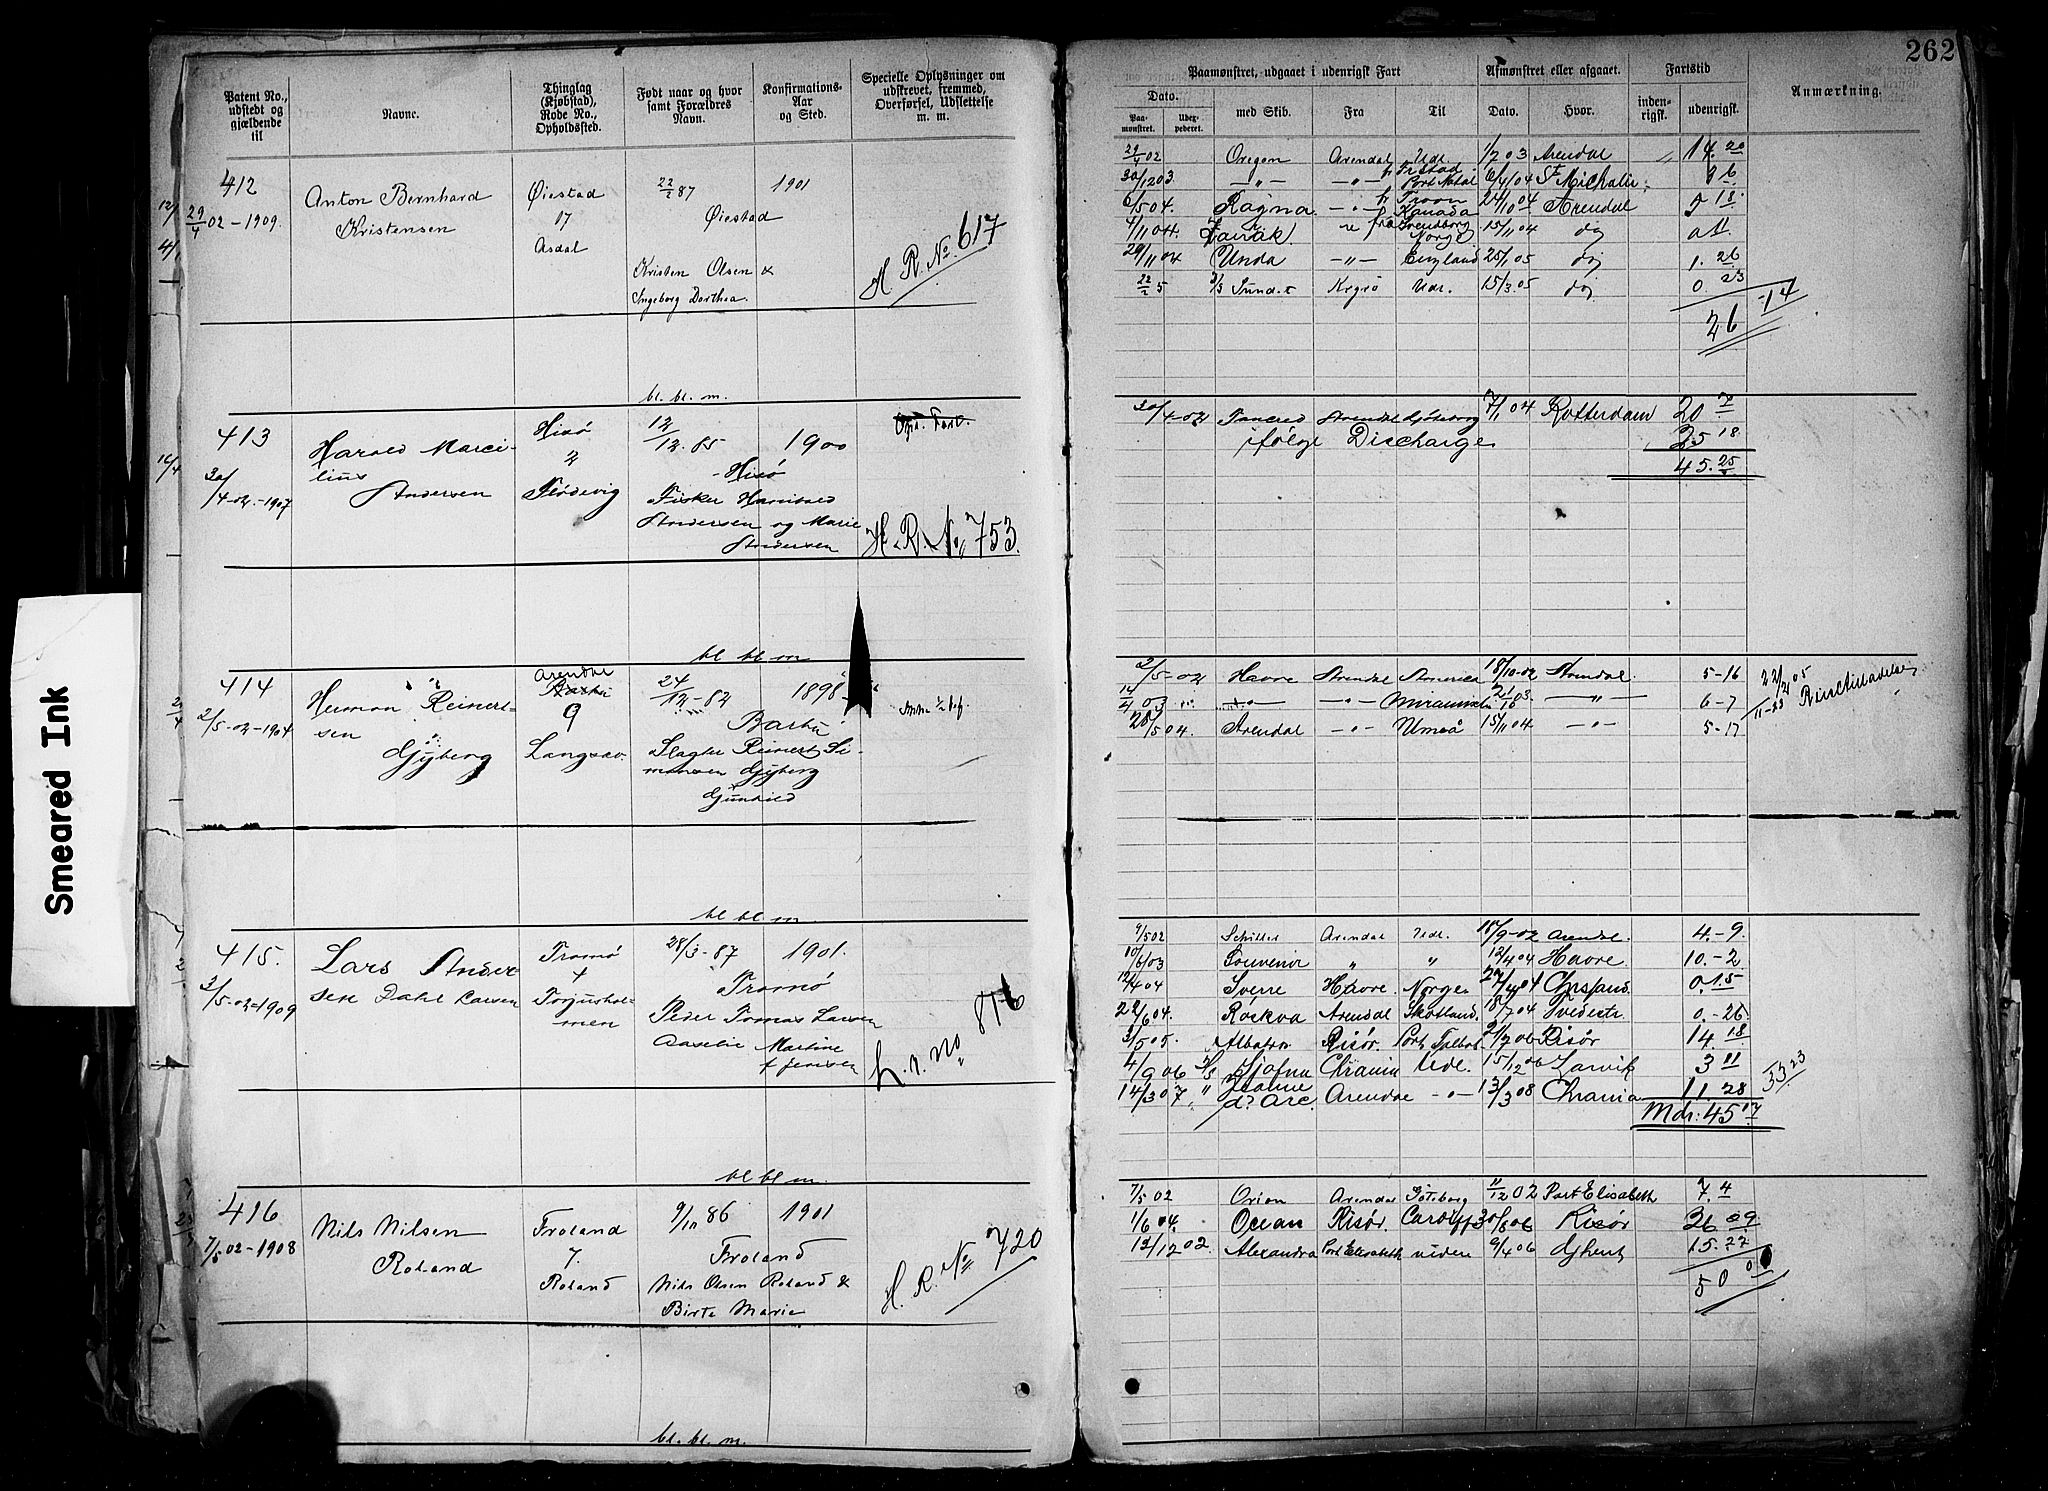 262
Patent No., udstedt og gjældende til
Navne.
Thinglag (Kjøbstad), Rode No., Opholdssted.
Født naar og hvor samt Forældres Navn.
Konfirmations- Aar og Sted.
Specielle Oplysninger om udskrevet, fremmed, Overførsel, Udslettelse m. m.
Paamønstret, udgaaet i udenrigsk Fart
Afmønstret eller afgaaet.
Fartstid
Anmærkning.
Dato.
Paa- mønstret.
Udex- pederet.
med Skib.
Fra
Til
Dato.
Hvor.
inden- rigsk.
udenrigsk.
412
29/4 02-1909.
Anton Bernhard
Kristensen
Øiestad
17
Asdal
22/2 87
1901
Øiestad
Kristen Olsen &
Ingeborg Dorthea.
H. R. No. 617
29/4 02 Oregon Arendal Udl. 1/7 03 Arendal 14. 20
30/12 03 -"- -"- Port Natal 6/4 04 St Michalis 3 6
6/5 04. Ragna -"- Kanada 24/10 04 Arendal 5 18
4/11 04. Norge 15/11 04 do
29/11 04 Unda -"- England 25/1 05 do 1. 26
22/2 5 Krgrø Udl. 15/3 05 do 0. 23
26 -14
bl. bl. m.
413
30/4-02-1907
Harald Marci-
lius
Andersen
Hisø
2
Flødevig
12/12. 85
1900
Hisø
Fisker Hanibald
Andersen og Marie
Andersen
H. R. No 753.
30/4-02 Tancred Arendal Göteborg 7/1 04 Rotterdam 20 7
ifølge Discharge 25 18
45. 25
bl bl m
414
2/5-02-1904
Herman Reinert-
sen
Gjyberg
Arendal
Barbu
9
Langsæ.
24/12-82
1898
Barbu
Slagter Reinert Si-
monsen Gjyberg
Gunhild
2/5-02 Havre Arendal America 18/10-02 Arendal 5-16
14/4 03 -"- -"- Miramichi 21/10 03 -"- 6-7
28/5 04. Arendal -"- Umeå 15/11 04 -"- 5-17
bl bl. m.
415.
3/5-02-1909
Lars Ander
sen Dahl Larsen
Tromø
4
Torjushol-
men
28/3-87
1901.
Tromø
Peder Tomas Larsen
Aaselie Martine
f Jensen
h. r. no. 816
9/5 02 Schiller Arendal Udl. 18/9-02 Arendal. 4.-9.
10/6 03 Souvenir " " 12/4 04 Havre. 10.-2
12/4 04 Sverre Havre. Norge 27/4 04 Chrsand. 0. 15
22/6 04. Røskva Arendal Skotland. 18/7 04 Tvedestr. 0.-26.
3/5 05. Albatros Risør. Port Talbot 21/7 06 Risør 14. 18
4/9 06 S/S Sjofna Chrania Udl. 15/12 06 Larvik 3 11
14/3 07 " Jeanne d'Arc. Arendal -"- 13/3 08 Chrania 11. 28
53 23
Mdr: 45 07
bl bl m.
416
7/5 02-1908
Nils Nilsen
Roland
Froland
7.
Roland
9/10 86
1901
Froland
Nils Olsen Roland &
Birte Marie
H. R. No 720
7/5 02 Orion Arendal Göteborg 11/12 02 Port Elisabeth 7. 4
1/6 04. Ocean Risør. Cardiff 30/8 06 Risør 26 09
12/12 02. Alexandra Port Elisabeth videre 9/4 06 Ghent 15. 27
50 0
bl. bl. m.
Smeared Ink